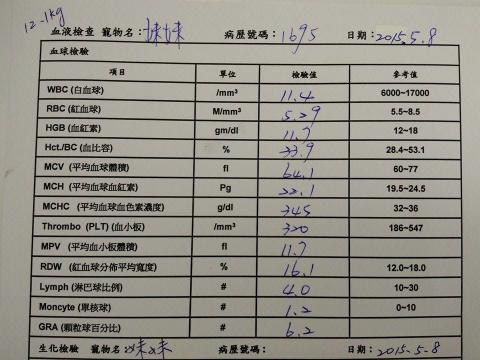 12.1kg
血液檢查 寵物名：妹妹 病歷號碼：1695 日期：2015.5.8
血球檢驗
項目 單位 檢驗值 參考值
WBC (白血球) /mm³ 11.4 6000~17000
RBC (紅血球) M/mm³ 5.29 5.5~8.5
HGB (血紅素) gm/dl 11.7 12~18
Hct./BC (血比容) % 33.9 28.4~53.1
MCV (平均血球體積) fl 64.1 60~77
MCH (平均血球血紅素) Pg 22.1 19.5~24.5
MCHC (平均血球血色素濃度) g/dl 345 32~36
Thrombo (PLT) (血小板) /mm³ 320 186~547
MPV (平均血小板體積) fl 11.7
RDW (紅血球分佈平均寬度) % 16.1 12.0~18.0
Lymph (淋巴球比例) # 4.0 10~30
Moncyte (單核球) # 1.2 0~10
GRA (顆粒球百分比) # 6.2
生化檢驗 寵物名：妹妹 病歷號碼： 日期：2015.5.8